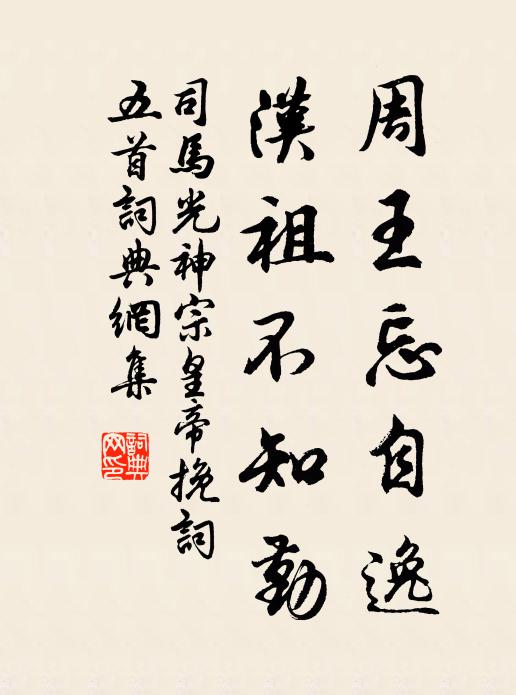 周王忘自逸
漢祖不知勤
司馬光神宗皇帝挽詞
五首詞典網集
詞典網印